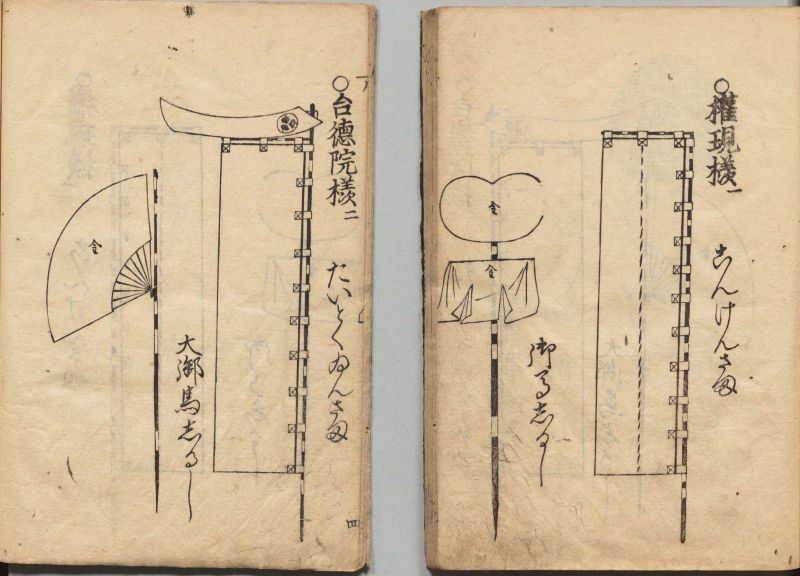 ○權現様 一
ごんけんさま
御馬志るし
金
金
○台德院様 二
たいとくゐんさま
大御馬志るし
金
四